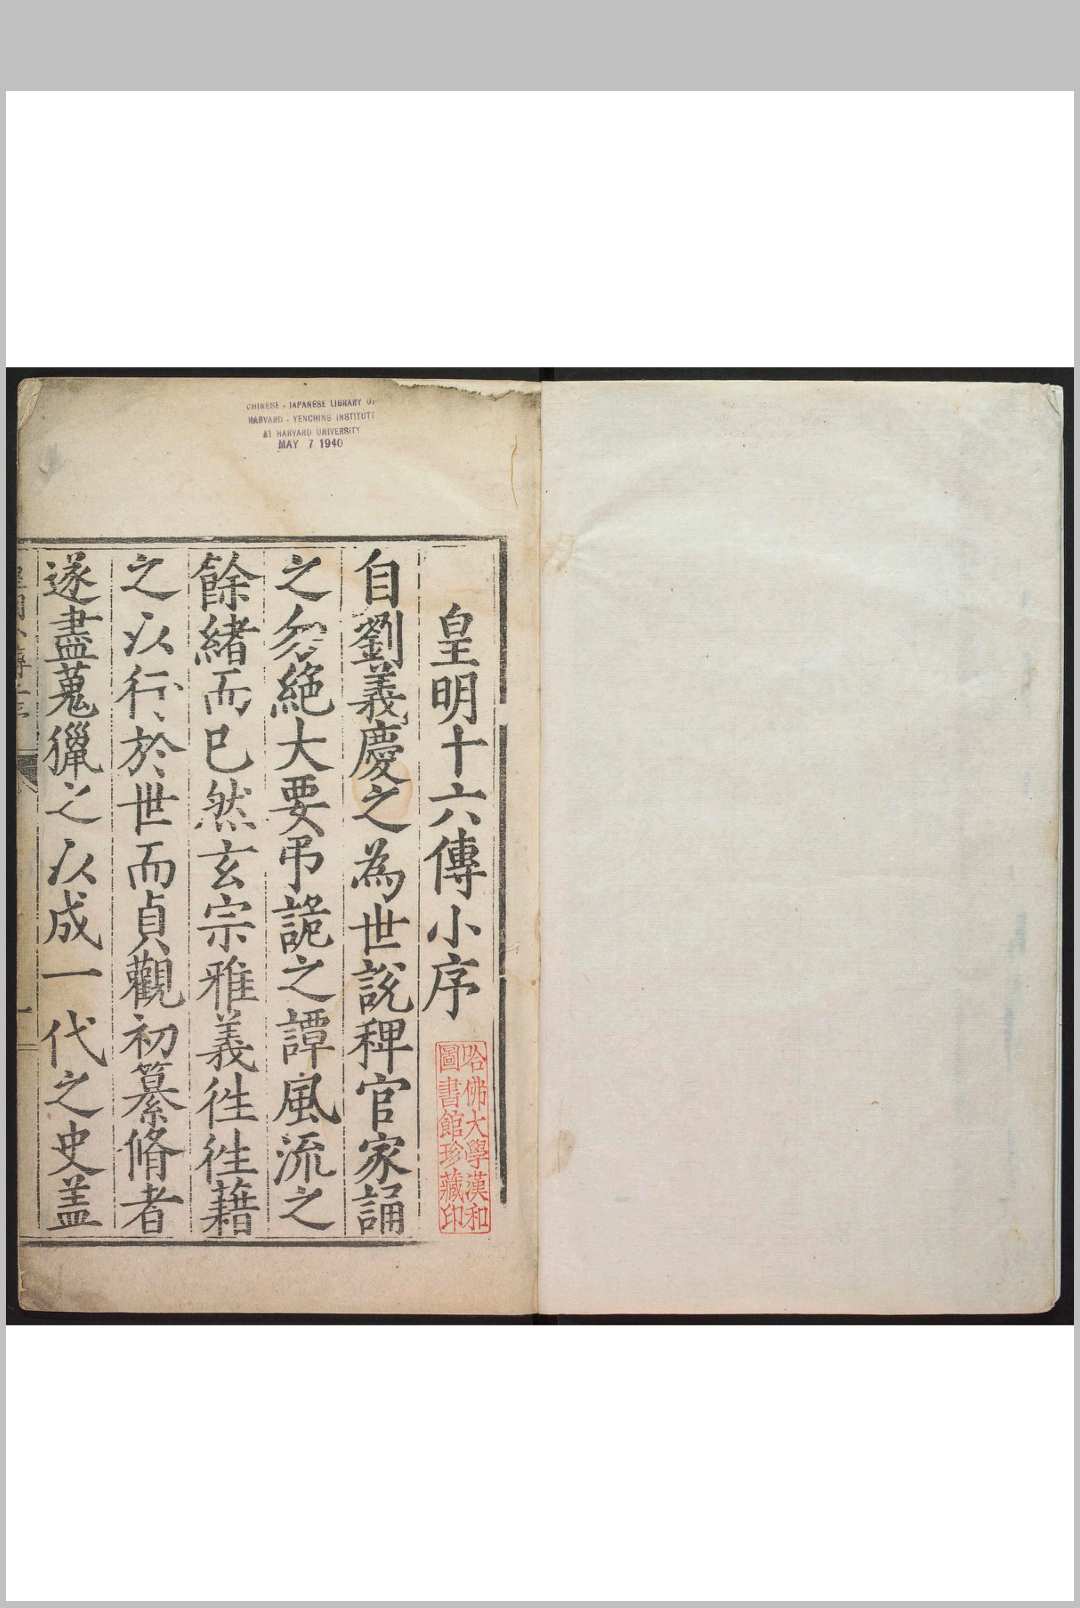 CHINESE - JAPANESE LIBRARY OF
HARVARD - YENCHING INSTITUTE
AT HARVARD UNIVERSITY
MAY 7 1940
皇明十六傳小序
哈佛大學漢和
圖書館珍藏印
自劉義慶之為世說稗官家誦
之勿絶大要弔詭之譚風流之
餘緒而已然玄宗雅義徃徃藉
之以行於世而貞觀初纂脩者
遂盡蒐獵之以成一代之史盖